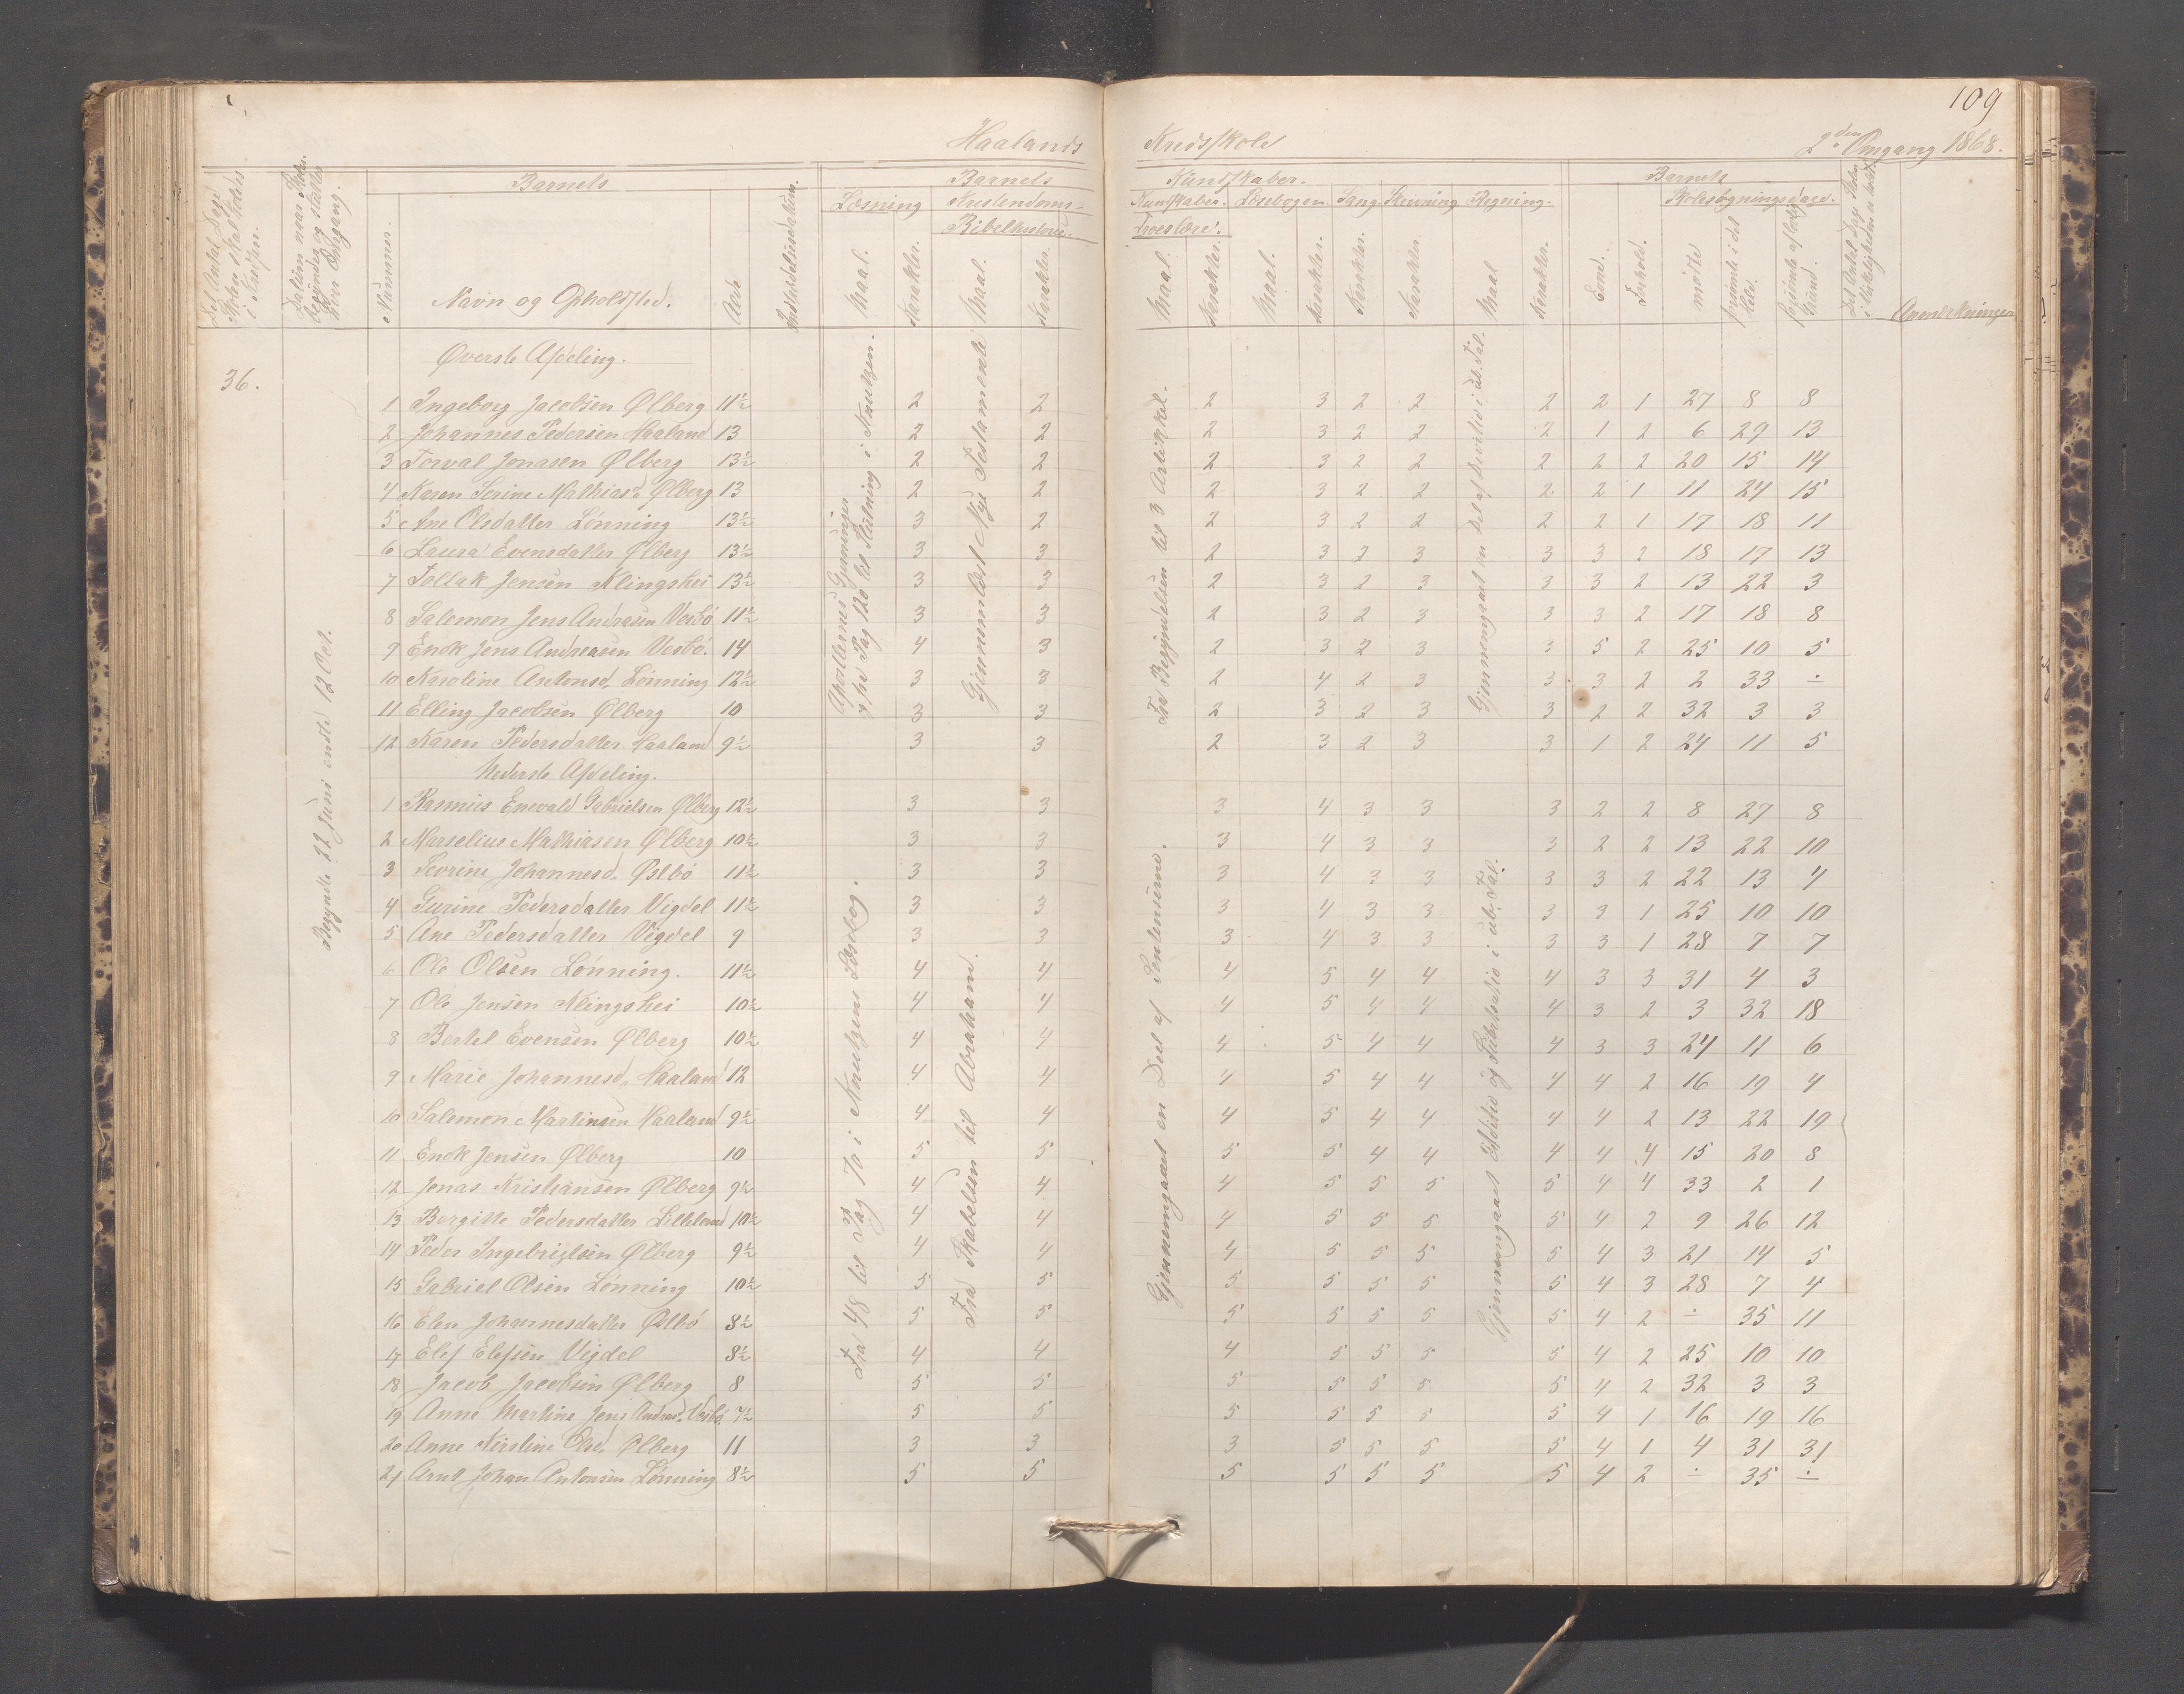 109
Haalands Kredsskole
2den Omgang 1868.
Det Antal Dage Skolen skal holdes i Kredsen.
Datum naar Skolen begynder og slutter hver Omgang.
Barnets
Nummer.
Navn og Opholdssted.
Alder
Indtrædelsesdatum.
Barnets Kundskaber.
Læsning
Kristendoms- Kundskaber.
Bibelhistorie.
Troeslære.
Læsebogen
Sang
Skrivning
Regning.
Maal.
Karakter.
Maal.
Karakter.
Maal.
Karakter.
Maal.
Karakter.
Karakter.
Karakter.
Maal
Karakter.
Barnets
Evne.
Forhold.
Skolesøgningsdage.
mødte
forsømte i det Hele.
forsømte af lovlig Grund.
Det Antal Dage Skolen i Virkeligheden er holdt
Anmærkninger
36.
Begyndte 22 Juni endte 12 Oct.
Øverste Afdeling.
1 Ingeborg Jacobsen Ølberg 11½ 2 2 2 3 2 2 2 2 1 27 8 8
2 Johannes Pedersen Haaland 13 2 2 2 3 2 2 2 1 2 6 29 13
3 Torval Jonasen Ølberg 13½ 2 2 2 3 2 2 2 2 2 20 15 14
4 Karen Serine Mathiasd. Ølberg 13 2 2 2 3 2 2 2 2 1 11 24 15
5 Ane Olsdatter Lønning 13½ 3 2 2 3 2 2 2 2 1 17 18 11
6 Laura Evensdatter Ølberg 13½ 3 3 2 3 2 3 3 3 2 18 17 13
7 Tollak Jensen Klingshei 13½ 3 3 2 3 2 3 3 3 2 13 22 3
8 Salemon Jens Andreasen Vesbö 11½ 3 3 2 3 2 3 3 3 2 17 18 8
9 Enok Jens Andreasen Vesbö. 14 4 3 2 3 2 3 3 5 2 25 10 5
10 Karoline Antonsd. Lønning 12½ 3 3 2 4 2 3 3 3 2 2 33 ÷
11 Elling Jacobsen Ølberg 10 3 3 2 3 2 3 3 2 2 32 3 3
12 Karen Pedersdatter Haaland 9½ 3 3 2 3 2 3 3 1 2 24 11 5
Apostlernes Gjerninger og fra Pag 120 til Slutning i Knutzen.
Gjennemlæst Nye Testamente
Fra Begyndelsen til 3 Artikkel.
Gjennemgaaet en Del af Divitio i ub. Tal.
Nederste Afdeling.
1 Rasmus Enevald Gabrielsen Ølberg 12½ 3 3 3 4 3 3 3 2 2 8 27 8
2 Marselius Mathiasen Ølberg 10½ 3 3 3 4 3 3 3 2 2 13 22 10
3 Tevrine Johannesd. Östbö 11½ 3 3 3 4 3 3 3 3 2 22 13 4
4 Gurine Pedersdatter Vigdel 11½ 3 3 3 4 3 3 3 3 1 25 10 10
5 Ane Pedersdatter Vigdel 9 3 3 3 4 3 3 3 3 1 28 7 7
6 Ole Olsen Lønning. 11½ 4 4 4 5 4 4 4 3 3 31 4 3
7 Ole Jensen Klingshei 10½ 4 4 4 5 4 4 4 3 2 3 32 18
8 Bertel Evensen Ølberg 10½ 4 4 4 5 4 4 4 3 3 24 11 6
9 Marie Johannesd. Haaland 12 4 4 4 5 4 4 4 4 2 16 19 4
10 Salemon Martinsen Haaland 9½ 4 4 4 5 4 4 4 4 2 13 22 19
11 Enok Jensen Ølberg 10 5 5 5 5 4 4 4 4 4 15 20 8
12 Jonas Kristiansen Ølberg 9½ 4 4 4 5 5 5 5 4 4 33 2 1
13 Bergitte Pedersdatter Litleland 10½ 4 4 4 5 5 5 5 4 2 9 26 12
14 Peder Ingebrigtsen Ølberg 9½ 4 4 4 5 5 5 5 4 3 21 14 5
15 Gabriel Olsen Lønning 10½ 5 5 5 5 5 5 5 4 3 28 7 4
16 Elen Johannesdatter Östbö 8½ 5 5 5 5 5 5 5 4 2 ÷ 35 11
17 Elef Elefsen Vigdel 8½ 4 4 4 5 5 5 5 4 2 25 10 10
18 Jacob Jacobsen Ølberg 8 5 5 5 5 5 5 5 4 2 32 3 3
19 Anne Martine Jens Andread. Vesbö 7½ 5 5 5 5 5 5 5 4 1 16 19 16
20 Anne Kirstine Olsd. Ølberg 11 3 3 3 5 5 5 5 4 1 4 31 31
21 Arnt Johan Antonsen Lønning 8½ 5 5 5 5 5 5 5 4 2 ÷ 35 ÷
Fra 48 til Pag 70 i Knutzens Læsebog.
Fra Skabelsen til Abraham.
Gjennemgaaet en Deel af Sententserne.
Gjennemgaaet Additio og Subtratio i ub. Tal.